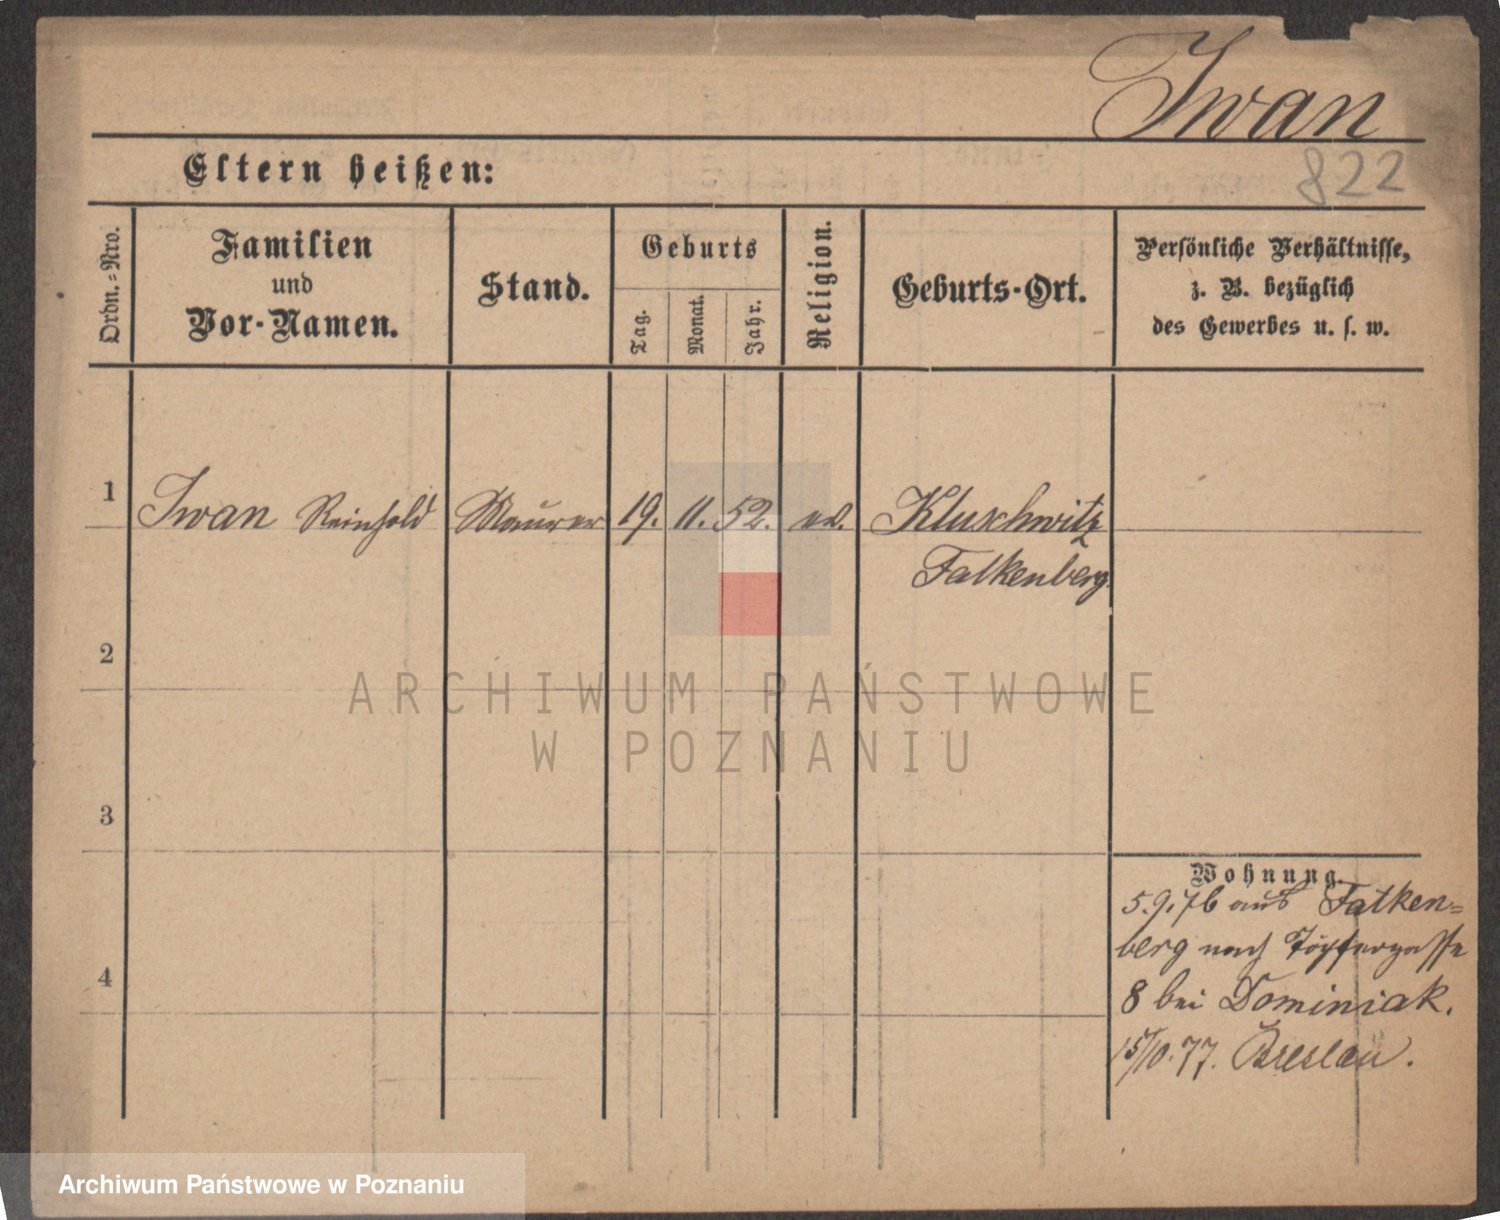 Iwan
822
Eltern heißen:
Ordn.-Nro.
Familien
und
Vor-Namen.
Stand.
Geburts
Tag.
Monat.
Jahr.
Religion.
Geburts-Ort.
Persönliche Verhältnisse,
z. B. bezüglich
des Gewerbes u. s. w.
1 Iwan Reinhold Maurer 19. 11. 52. ev. Kluschwitz
Falkenberg.
2
ARCHIWUM PAŃSTWOWE
W POZNANIU
3
Wohnung.
5.9.76 aus Falken=
berg nach Töpfergasse
4
8 bei Dominiak.
15/10.77. Breslau.
Archiwum Państwowe w Poznaniu